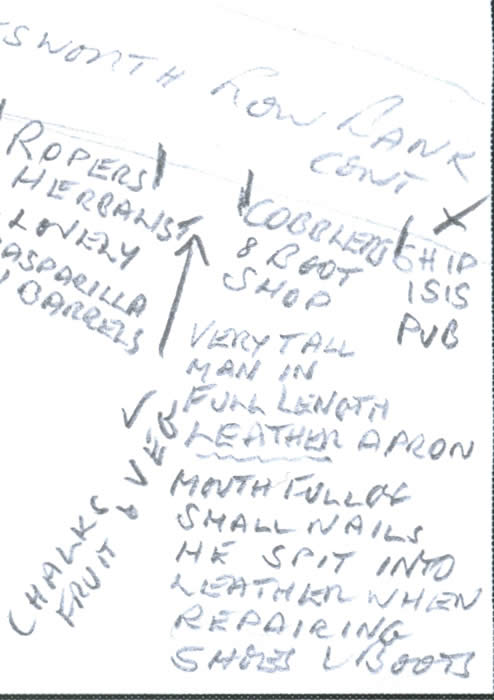 SWORTH ROW RANK
CONT
ROPERS
HERBALIST
LOVELY
ASPARILLA
BARRELS
COBBLERS
& BOOT
SHOP
SHIP
ISIS
PUB
VERY TALL
MAN IN
FULL LENGTH
LEATHER APRON
MOUTH FULL OF
SMALL NAILS
HE SPIT INTO
LEATHER WHEN
REPAIRING
SHOES & BOOTS
CHALKS
FRUIT & VEG